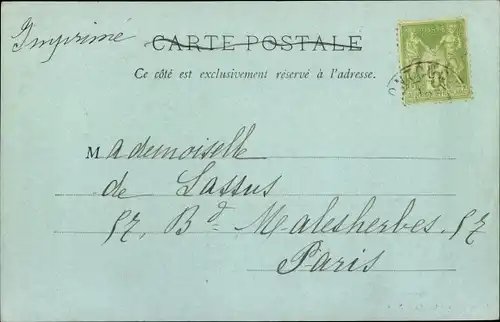 Imprimé
CARTE POSTALE
Ce côté est exclusivement réservé à l'adresse.
Mademoiselle
de Lassus
57, Bd Malesherbes, 57
Paris